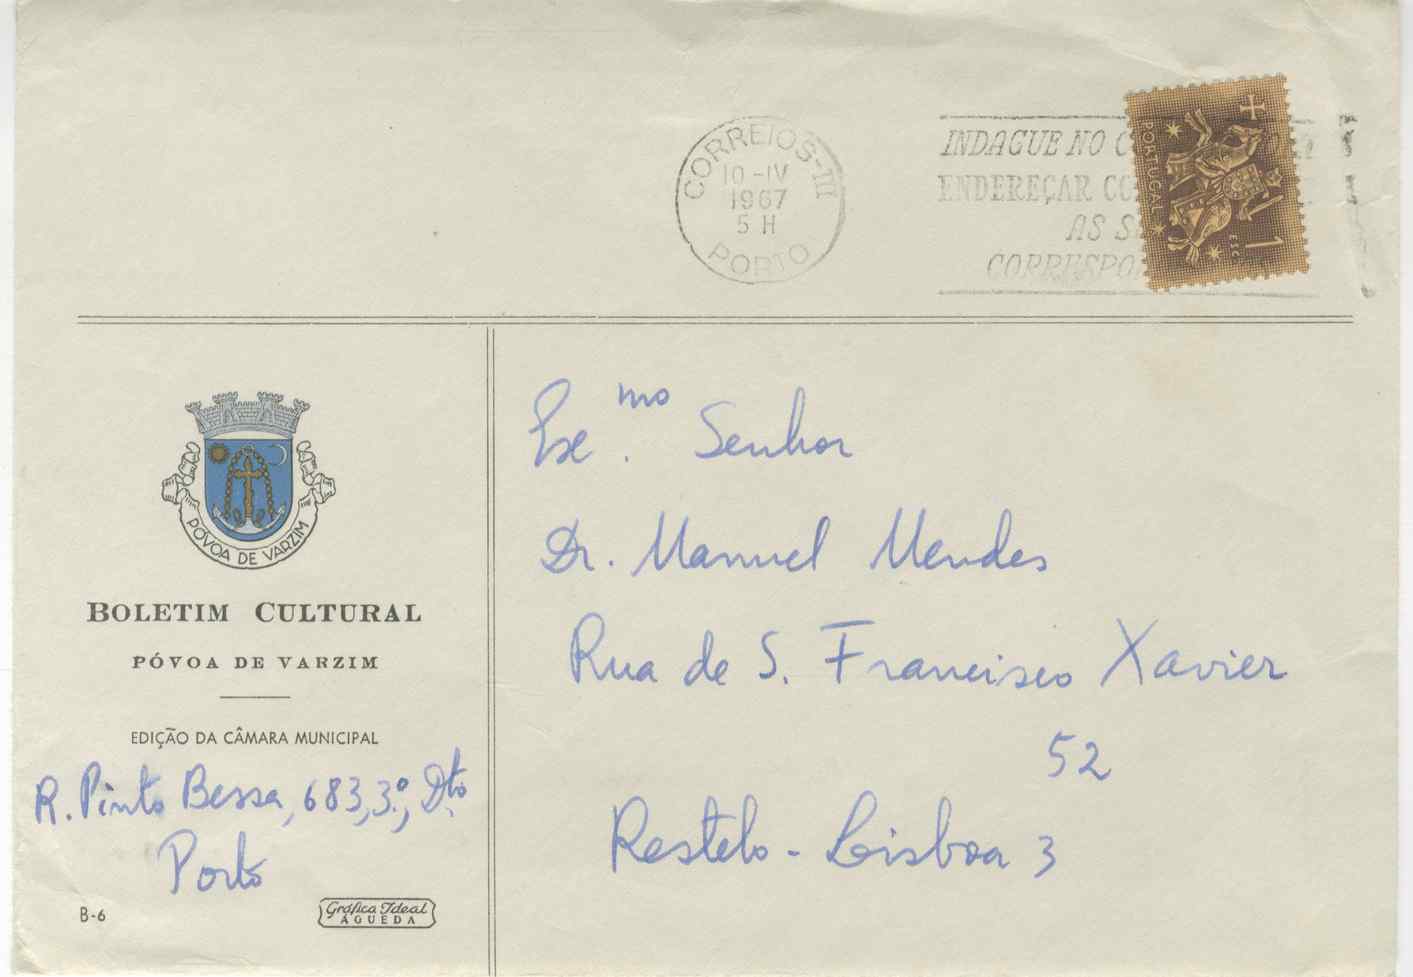 CORREIOS-III
10-IV
1967
5 H
PORTO
INDAGUE NO
ENDEREÇAR
AS
PORTUGAL
1 ESC.
PÓVOA DE VARZIM
BOLETIM CULTURAL
PÓVOA DE VARZIM
EDIÇÃO DA CÂMARA MUNICIPAL
R. Pinto Bessa, 683, 3.º, Dto.
Porto
B-6
Gráfica Ideal
ÁGUEDA
Exc.mo Senhor
Dr. Manuel Mendes
Rua de S. Francisco Xavier
52
Restelo - Lisboa 3